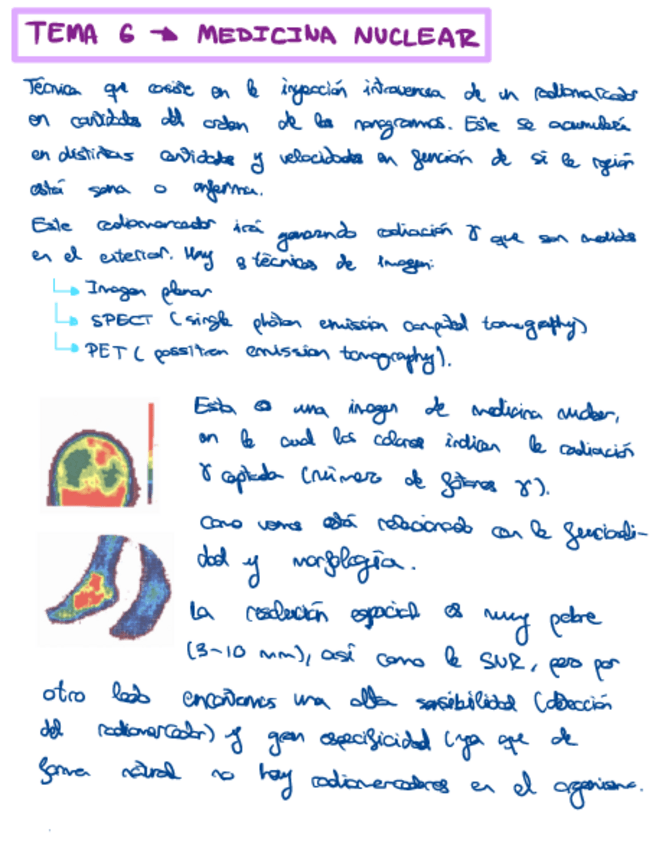 TEMA 6 → MEDICINA NUCLEAR
Técnica que consiste en la inyección intravenosa de un radiomarcador
en cantidades del orden de los nanogramos. Este se acumulará
en distintas cantidades y velocidades en función de si la región
está sana o enferma.
Este radiomarcador irá generando radiación γ que son medidas
en el exterior. Hay 3 técnicas de imagen:
Imagen planar
SPECT (single photon emission computed tomography)
PET (possitron emission tomography).
Esta es una imagen de medicina nuclear,
en la cual los colores indican la radiación
γ captada (número de fotones γ).
Como vemos está relacionado con la funcionali-
dad y morfología.
La resolución espacial es muy pobre
(3-10 mm), así como la SUR, pero por
otro lado encontramos una alta sensibilidad (detección
del radiomarcador) y gran especificidad (ya que de
forma natural no hay radiomarcadores en el organismo.